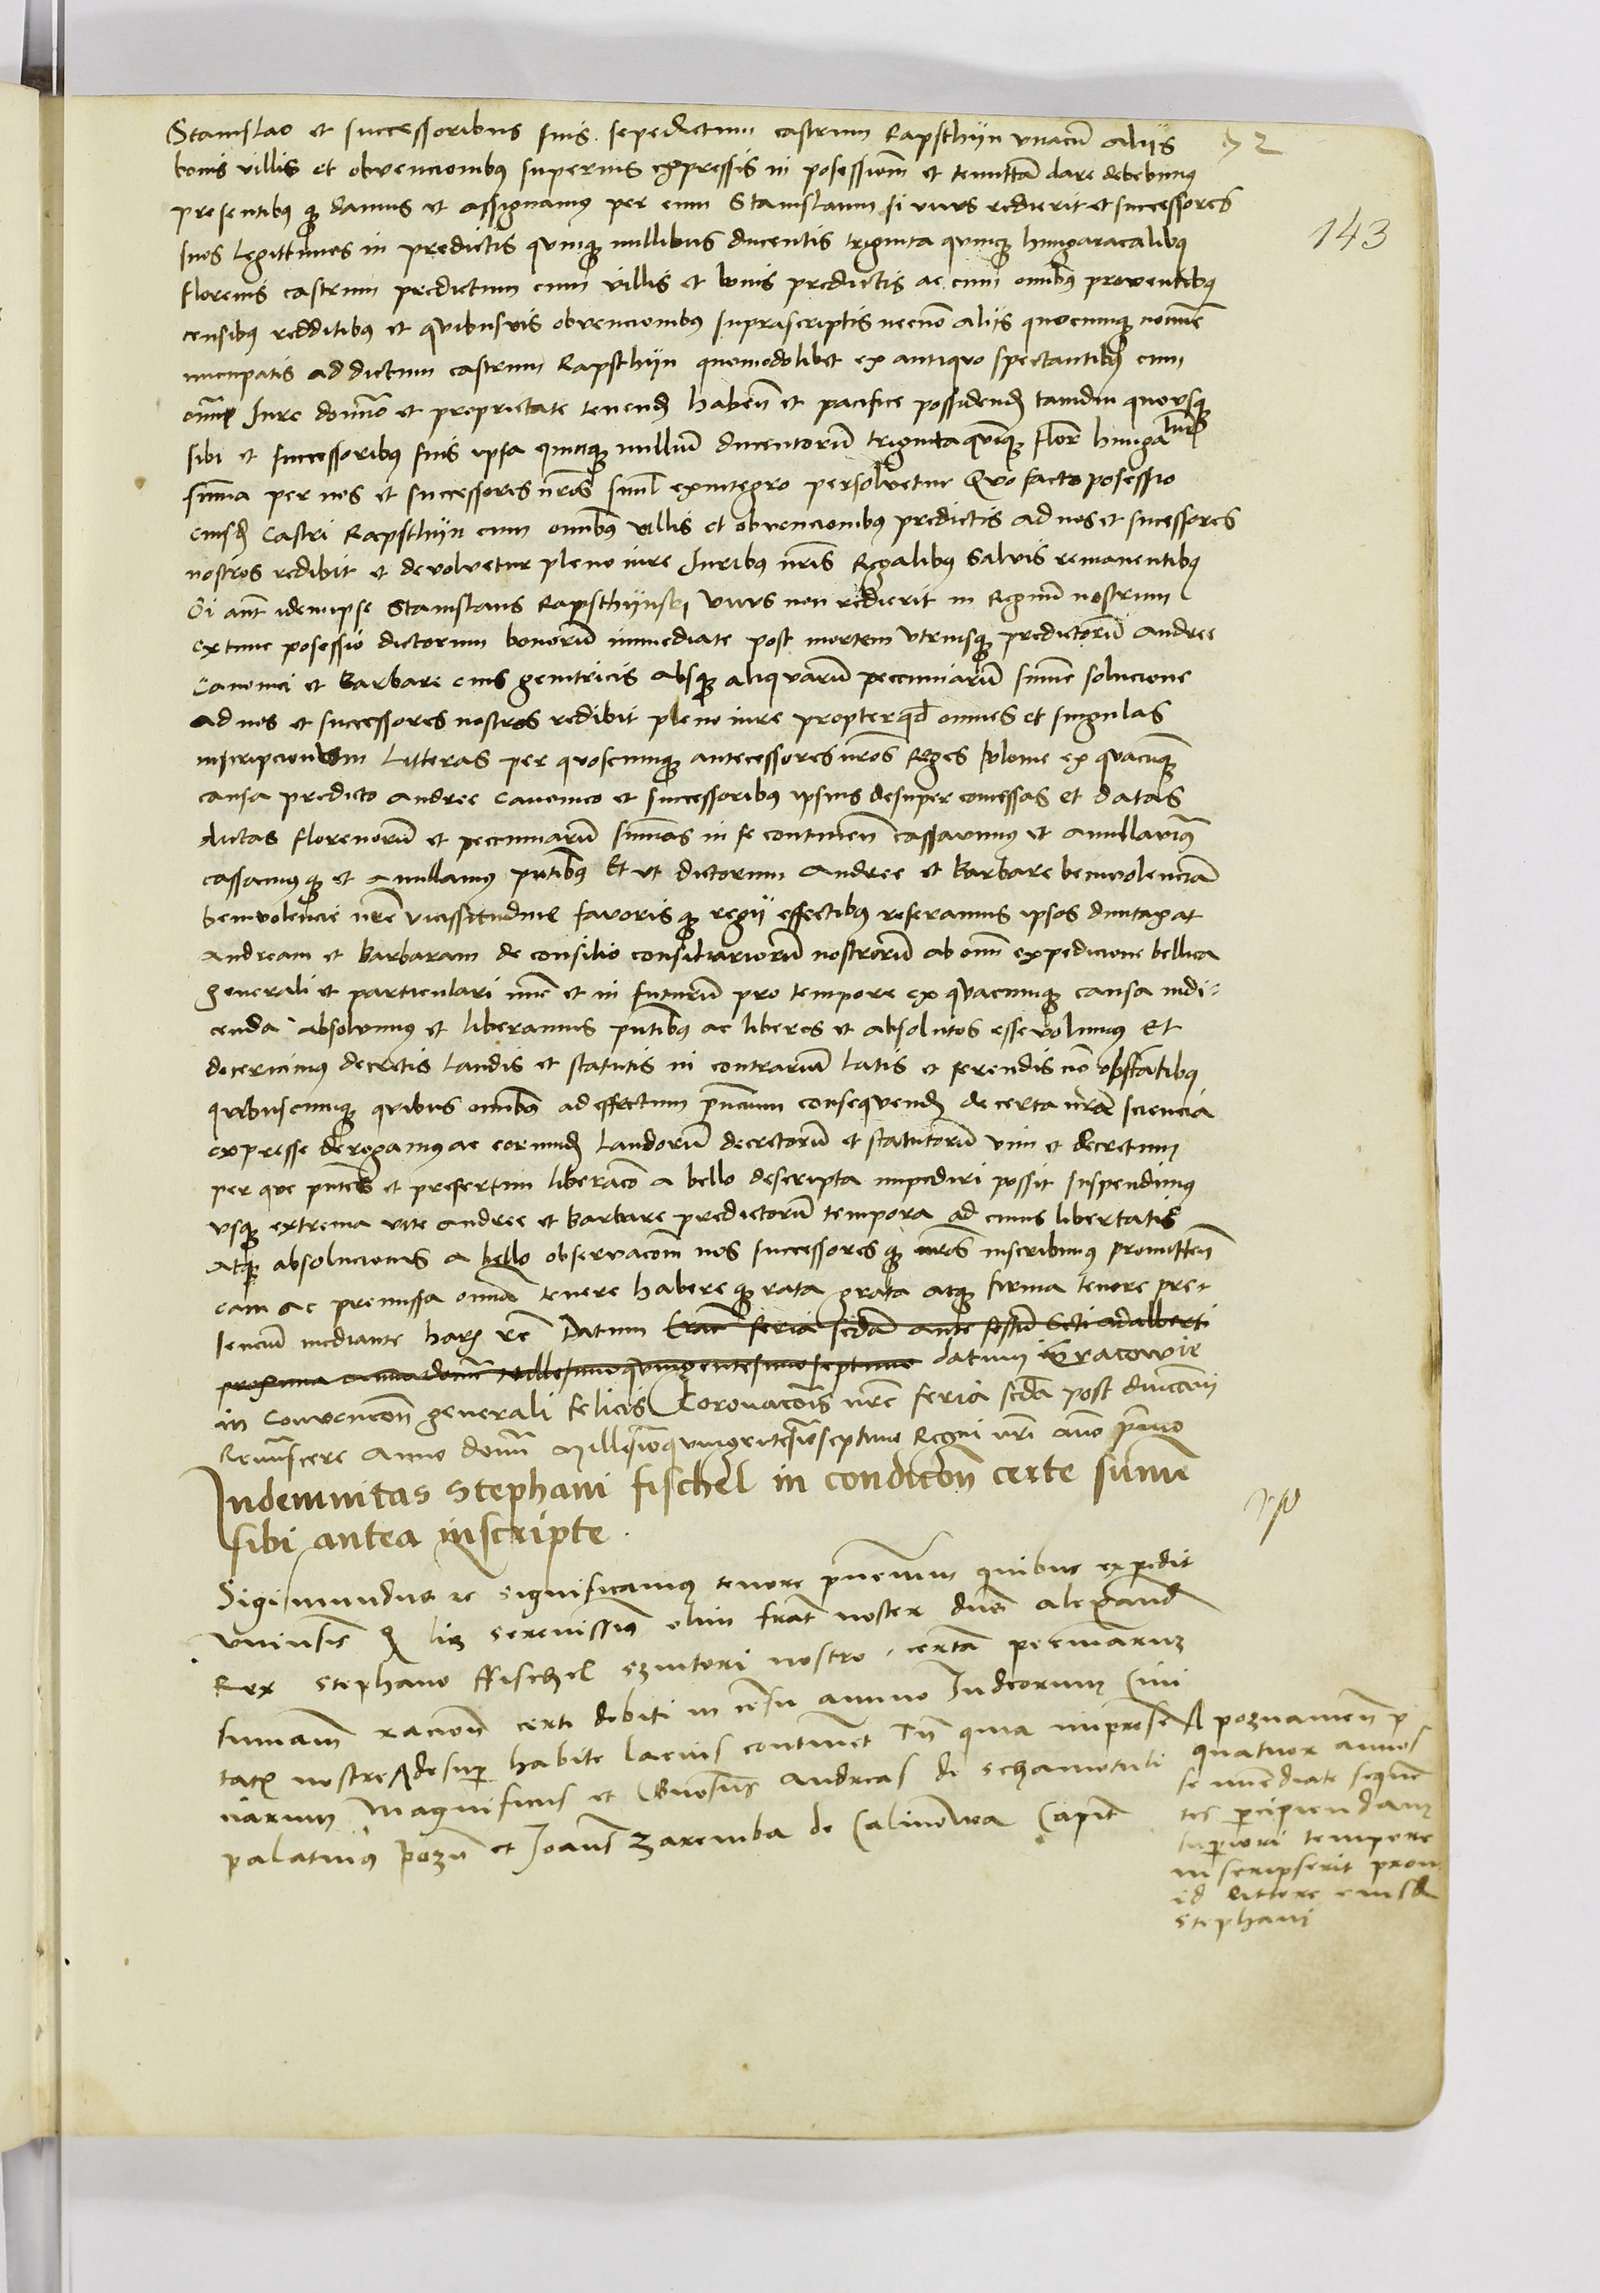 Stanislao et successoribus suis sepedictum castrum Rapsthijn vnacu aliis
bonis villis et obvencionibus superius expressis in posessionem et tenuttam dare debebimus
presentibusque damus et assignamus per eum Stanislaum si viuus redierit et successores
suos legittimos in predictis quinque millibus ducentis triginta quinque hungaricalibus
florenis castrum predictum cum villis et bonis predictis ac cum omnibus proventibus
censibus redditibus et quibusuis obvencionibus suprascriptis necno aliis quocumque nomine
nuncupatis ad dictum castrum Rapsthijn quomodolibet ex antiquo spectantibus cum
omni Iure domino et proprietate tenend haben et pacifice possidend tamdiu quousque
sibi et successoribus suis ipsa quinque millium ducentoru triginta quinque flor hungaricalium
summa per nos et successores nros simul exintegro persolvetur Quo facto posessio
eiusd castri Rapsthijn cum omnibus villis et obvencionibus predictis ad nos et sucessores
nostros redibit et devolvetur pleno iure Iuribus nris Regalibus salvis remanentibus
Si aut idemipse Stanislaus Rapsthijnski viuus non redierit in Regnum nostrum
extunc posessio dictorum bonoru immediate post mortem vtriusque predictoru Andree
Canonici et Barbare eius genitricis absque aliquarum peccuniarum summe solucione
ad nos et successores nostros redibit pleno iure propterquod omnes et singulas
inscripcionum litteras per quoscumque antecessores nros Reges Polonie ex quacumque
causa predicto Andree Canonico et successoribus ipsius desuper concessas et datas
dictas florenoru et peccuniaru summas in se continen cassavimus et annullavimus
cassamusque et annullamus pntibus Et vt dictorum Andree et Barbare benivolenciam
benivolencie nre vicissitudine favorisque regii effectibus referamus ipsos duntaxat
Andream et Barbaram de consilio consiliarioru nostroru ab omni expedicione bellica
generali et particulari nunc et in futurum pro tempore ex quacumque causa indi-
cenda absolvimus et liberamus pntibus ac liberos et absolutos esse volumus Et
decernimus decretis laudis et statutis in contrarium latis et ferendis non obstantibus
quibuscumque quibus omnibus ad effectum pncium consequend de certa nra sciencia
expresse derogamus ac eorumd laudorum decretoru et statutoru vim et decretum
per que pntes et presertim liberacio a bello descripta impediri possit suspendimus
vsque extrema vite Andree et Barbare predictoru tempora ad cuius libertatis
atque absolucionis a bello observacionem nos successoresque nros inscribimus promitten
eam ac premissa omnia tenere habereque rata grata atque firma tenore pre-
sencium mediante harum rei Datum Crac feria secda ante festum Scti Adalberti
proxima anno domini millesimoquingentesimoseptimo datum Cracowie
in Convencione generali felicis Coronacionis nre feria secda post dnicam
Reminiscere Anno domini Millesimoquingentesimoseptimo Regni nri anno primo
Indemnitas Stephani Fischel in condicion certe summe
sibi antea inscripte
Sigismundus rc significamus tenore pncium quibus expedit
vniversis q lic serenissimus olim frater noster dns Alexand
Rex Stephano Ffischel servitori nostro certam pecuniarum
summam racione certi debiti in censu annuo Iudeorum Civi
tatis nostre desuper habite lacius continet Tn quia impresen
ciarum Magnificus et Generosus Andreas de Schamotuli
palatinus Pozn et Joannes Zaremba de Calinowa Capit
143
poznanien p
quatuor annos
se immediate sequen
tes percipiendam
superiori tempore
inscripserit prou
id littere eiusd
Stephani